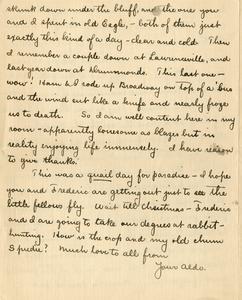 skunk down under the bluff, and the one you
and I spent in old Eagle, - both of them just
exactly this kind of a day - clear and cold. Then
I remember a couple down at Lawrenceville, and
last year down at Drummonds. This last one -
wow! Ham & I rode up Broadway on top of a 'bus
and the wind cut like a knife and nearly froze
us to death. So I am well content here in my
room - apparently lonesome as blazes but in
reality enjoying life immensely. I have reason
to give thanks.
This was a quail day for paradise - I hope
you and Frederic are getting out just to see the
little fellows fly. Wait till Christmas - Frederic
and I are going to take our degrees at rabbit-
hunting. How is the crop and my old chum
Spudie? Much love to all from
Your Aldo.